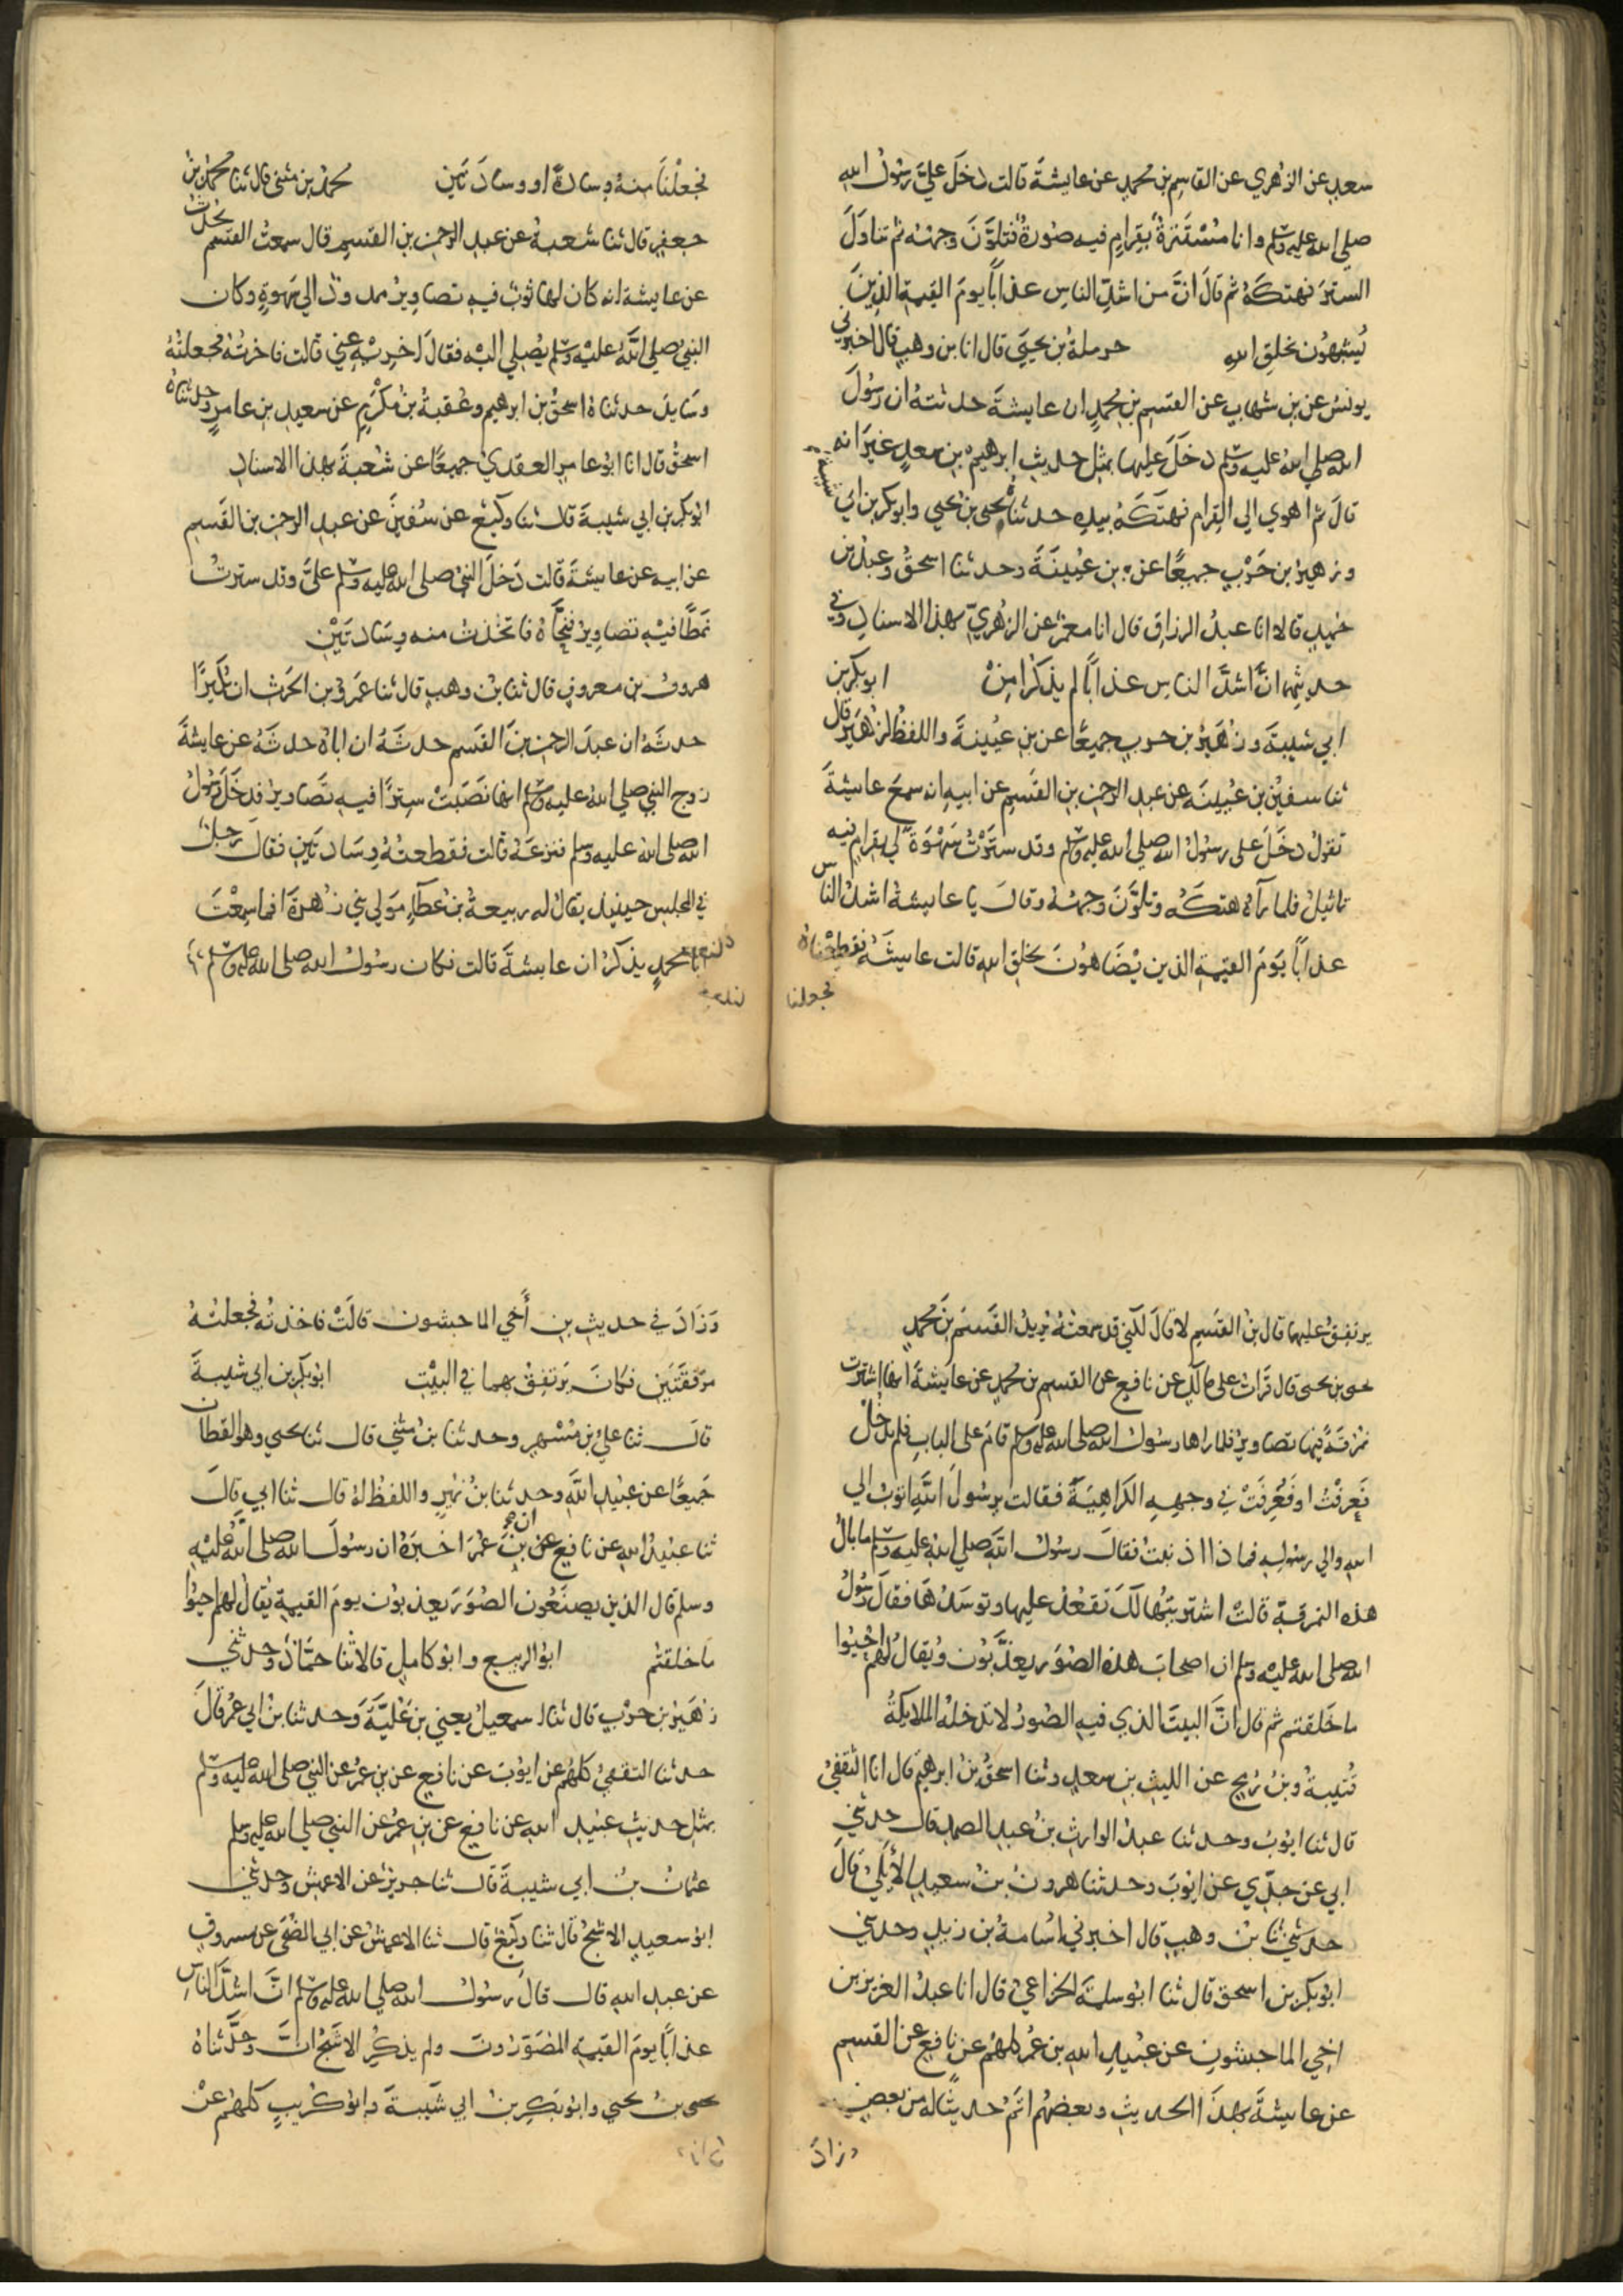 سعد عن الزهري عن القاسم بن محمد عن عايشة قالت دخل علي رسول الله
صلى الله عليه وسلم وانا مستترة بقرام فيه صورة فتلون وجهه ثم تناول
الستر فهتكه ثم قال ان من اشد الناس عذابا يوم القيمة الذين
يشبهون بخلق الله حرملة بن يحيى قال انا بن وهب قال اخبرني
يونس عن بن شهاب عن القسم بن محمد ان عايشة حدثته ان رسول
الله صلى الله عليه وسلم دخل عليها بمثل حديث ابرهيم بن سعد غير انه
قال ثم اهوى الى القرام فهتكه بيده حدثنا يحيى بن يحيى وابو بكر بن ابي شيبة
وزهير بن حرب جميعا عن بن عيينة وحدثنا اسحق وعبد بن
حميد قالا انا عبد الرزاق قال انا معمر عن الزهري بهذا الاسناد وفي
حديثهما ان اشد الناس عذابا لم يذكرا من ابو بكر بن
ابي شيبة وزهير بن حرب جميعا عن بن عيينة واللفظ لزهير قال
ثنا سفين بن عيينة عن عبد الرحمن بن القسم عن ابيه انه سمع عايشة
تقول دخل على رسول الله صلى الله عليه وسلم وقد سترت سهوة لي بقرام فيه
تماثيل فلما رآه هتكه وتلون وجهه وقال يا عايشة اشد الناس
عذابا يوم القيمة الذين يضاهون بخلق الله قالت عايشة فقطعناه
فجعلنا
فجعلنا منه وسادة او وسادتين محمد بن مثنى قال ثنا محمد بن
جعفر قال ثنا شعبة عن عبد الرحمن بن القسم قال سمعت القسم يحدث
عن عايشة انه كان لها ثوب فيه تصاوير ممدود الى سهوة وكان
النبي صلى الله عليه وسلم يصلي اليه فقال اخريه عني قالت فاخرته فجعلته
وسايد حدثناه اسحق بن ابرهيم وعقبة بن مكرم عن سعيد بن عامر وحدثناه
اسحق قال انا ابو عامر العقدي جميعا عن شعبة بهذا الاسناد
ابو بكر بن ابي شيبة قال ثنا وكيع عن سفين عن عبد الرحمن بن القسم
عن ابيه عن عايشة قالت دخل النبي صلى الله عليه وسلم علي وقد سترت
نمطا فيه تصاوير فنحاه فاتخذت منه وسادتين
هرون بن معروف قال ثنا بن وهب قال ثنا عمرو بن الحرث ان بكيرا
حدثه ان عبد الرحمن بن القسم حدثه ان اباه حدثه عن عايشة
زوج النبي صلى الله عليه وسلم انها نصبت سترا فيه تصاوير فدخل رسول
الله صلى الله عليه وسلم فنزعه قالت فقطعته وسادتين فقال رجل
في المجلس حينيذ يقال له ربيعة بن عطآء مولى بني زهرة افما سمعت
ابا محمد يذكر ان عايشة قالت فكان رسول الله صلى الله عليه وسلم
يرتفق عليهما قال بن القسم لا قال لكني قد سمعته يريد القسم بن محمد
يحيى بن يحيى قال قرات على مالك عن نافع عن القسم بن محمد عن عايشة انها اشترت
نمرقة فيها تصاوير فلما راها رسول الله صلى الله عليه وسلم قام على الباب فلم يدخل
فعرفت او فعرفت في وجهه الكراهية فقالت يرسول الله اتوب الى
الله والى رسوله فماذا اذنبت فقال رسول الله صلى الله عليه وسلم ما بال
هذه النمرقة قالت اشتريتها لك تقعد عليها وتوسدها فقال رسول
الله صلى الله عليه وسلم ان اصحاب هذه الصور يعذبون ويقال لهم احيوا
ما خلقتم ثم قال ان البيت الذي فيه الصور لا تدخله الملايكة
قتيبة وبن رمح عن الليث بن سعد وثنا اسحق بن ابرهيم قال انا الثقفي
قال ثنا ايوب وحدثنا عبد الوارث بن عبد الصمد قال حدثني
ابي عن جدي عن ايوب وحدثنا هرون بن سعيد الايلي قال
حدثني ثنا بن وهب قال اخبرني اسامة بن زيد وحدثني
ابو بكر بن اسحق قال ثنا ابو سلمة الخزاعي قال انا عبد العزيز بن
اخي الماجشون عن عبيد الله بن عمر كلهم عن نافع عن القسم
عن عايشة بهذا الحديث وبعضهم اتم حديثا له من بعض
وزاد
وزاد في حديث بن أخي الماجشون قالت فاخذته فجعلته
مرفقتين فكان يرتفق بهما في البيت ابو بكر بن ابي شيبة
قال ثنا علي بن مسهر وحدثنا بن مثنى قال ثنا يحيى وهو القطان
جميعا عن عبيد الله وحدثنا بن نمير واللفظ له قال ثنا ابي قال
ثنا عبيد الله عن نافع ان بن عمر اخبره ان رسول الله صلى الله عليه
وسلم قال الذين يصنعون الصور يعذبون يوم القيمة يقال لهم احيوا
ما خلقتم ابو الربيع وابو كامل قالا ثنا حماد وحدثني
زهير بن حرب قال ثنا اسمعيل يعني بن علية وحدثنا بن ابي عمر قال
حدثنا الثقفي كلهم عن ايوب عن نافع عن بن عمر عن النبي صلى الله عليه وسلم
بمثل حديث عبيد الله عن نافع عن بن عمر عن النبي صلى الله عليه وسلم
عثمان بن ابي شيبة قال ثنا جرير عن الاعمش وحدثني
ابو سعيد الاشج قال ثنا وكيع قال ثنا الاعمش عن ابي الضحى عن مسروق
عن عبد الله قال قال رسول الله صلى الله عليه وسلم ان اشد الناس
عذابا يوم القيمة المصورون ولم يذكر الاشج ان وحدثناه
يحيى بن يحيى وابو بكر بن ابي شيبة وابو كريب كلهم عن